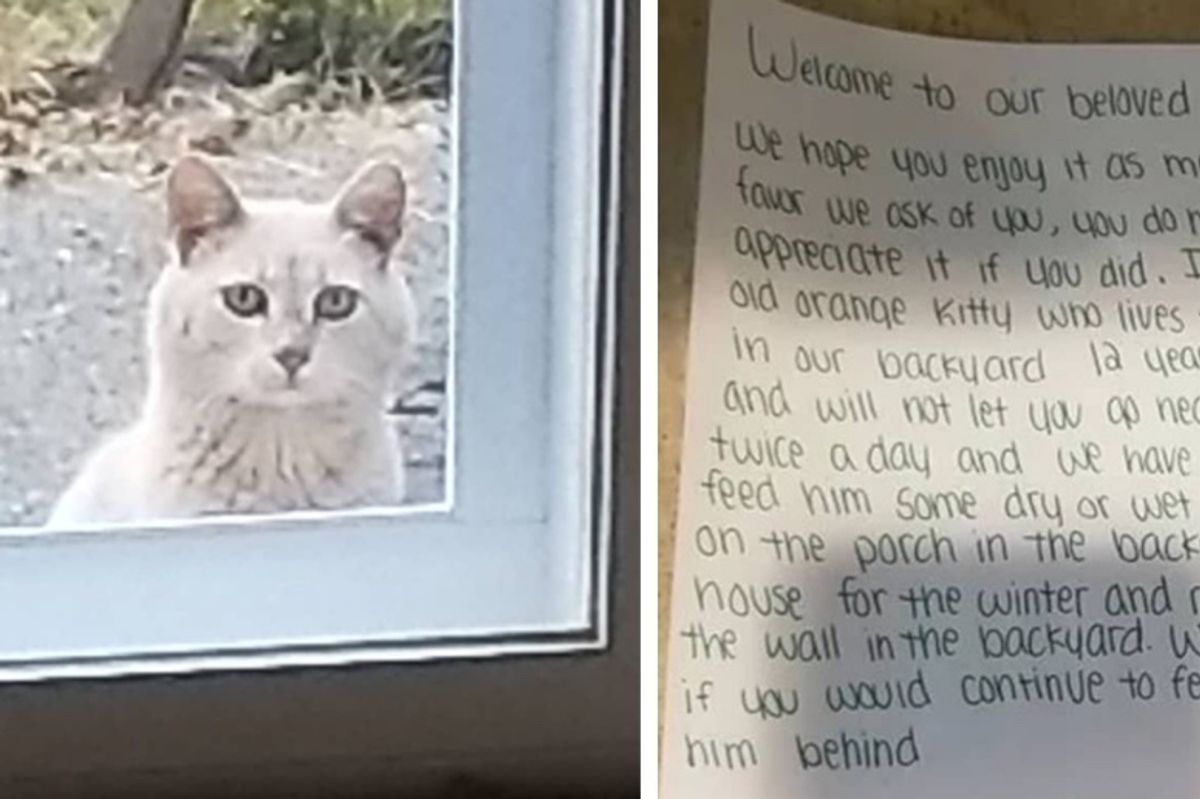 Welcome to our beloved
We hope you enjoy it as
favor we ask of you, you do
appreciate it if you did.
old orange kitty who lives
in our backyard 12
and will not let you go
twice a day and we have
feed him some dry or wet
on the porch in the
house for the winter and
the wall in the backyard.
if you would continue to
him behind